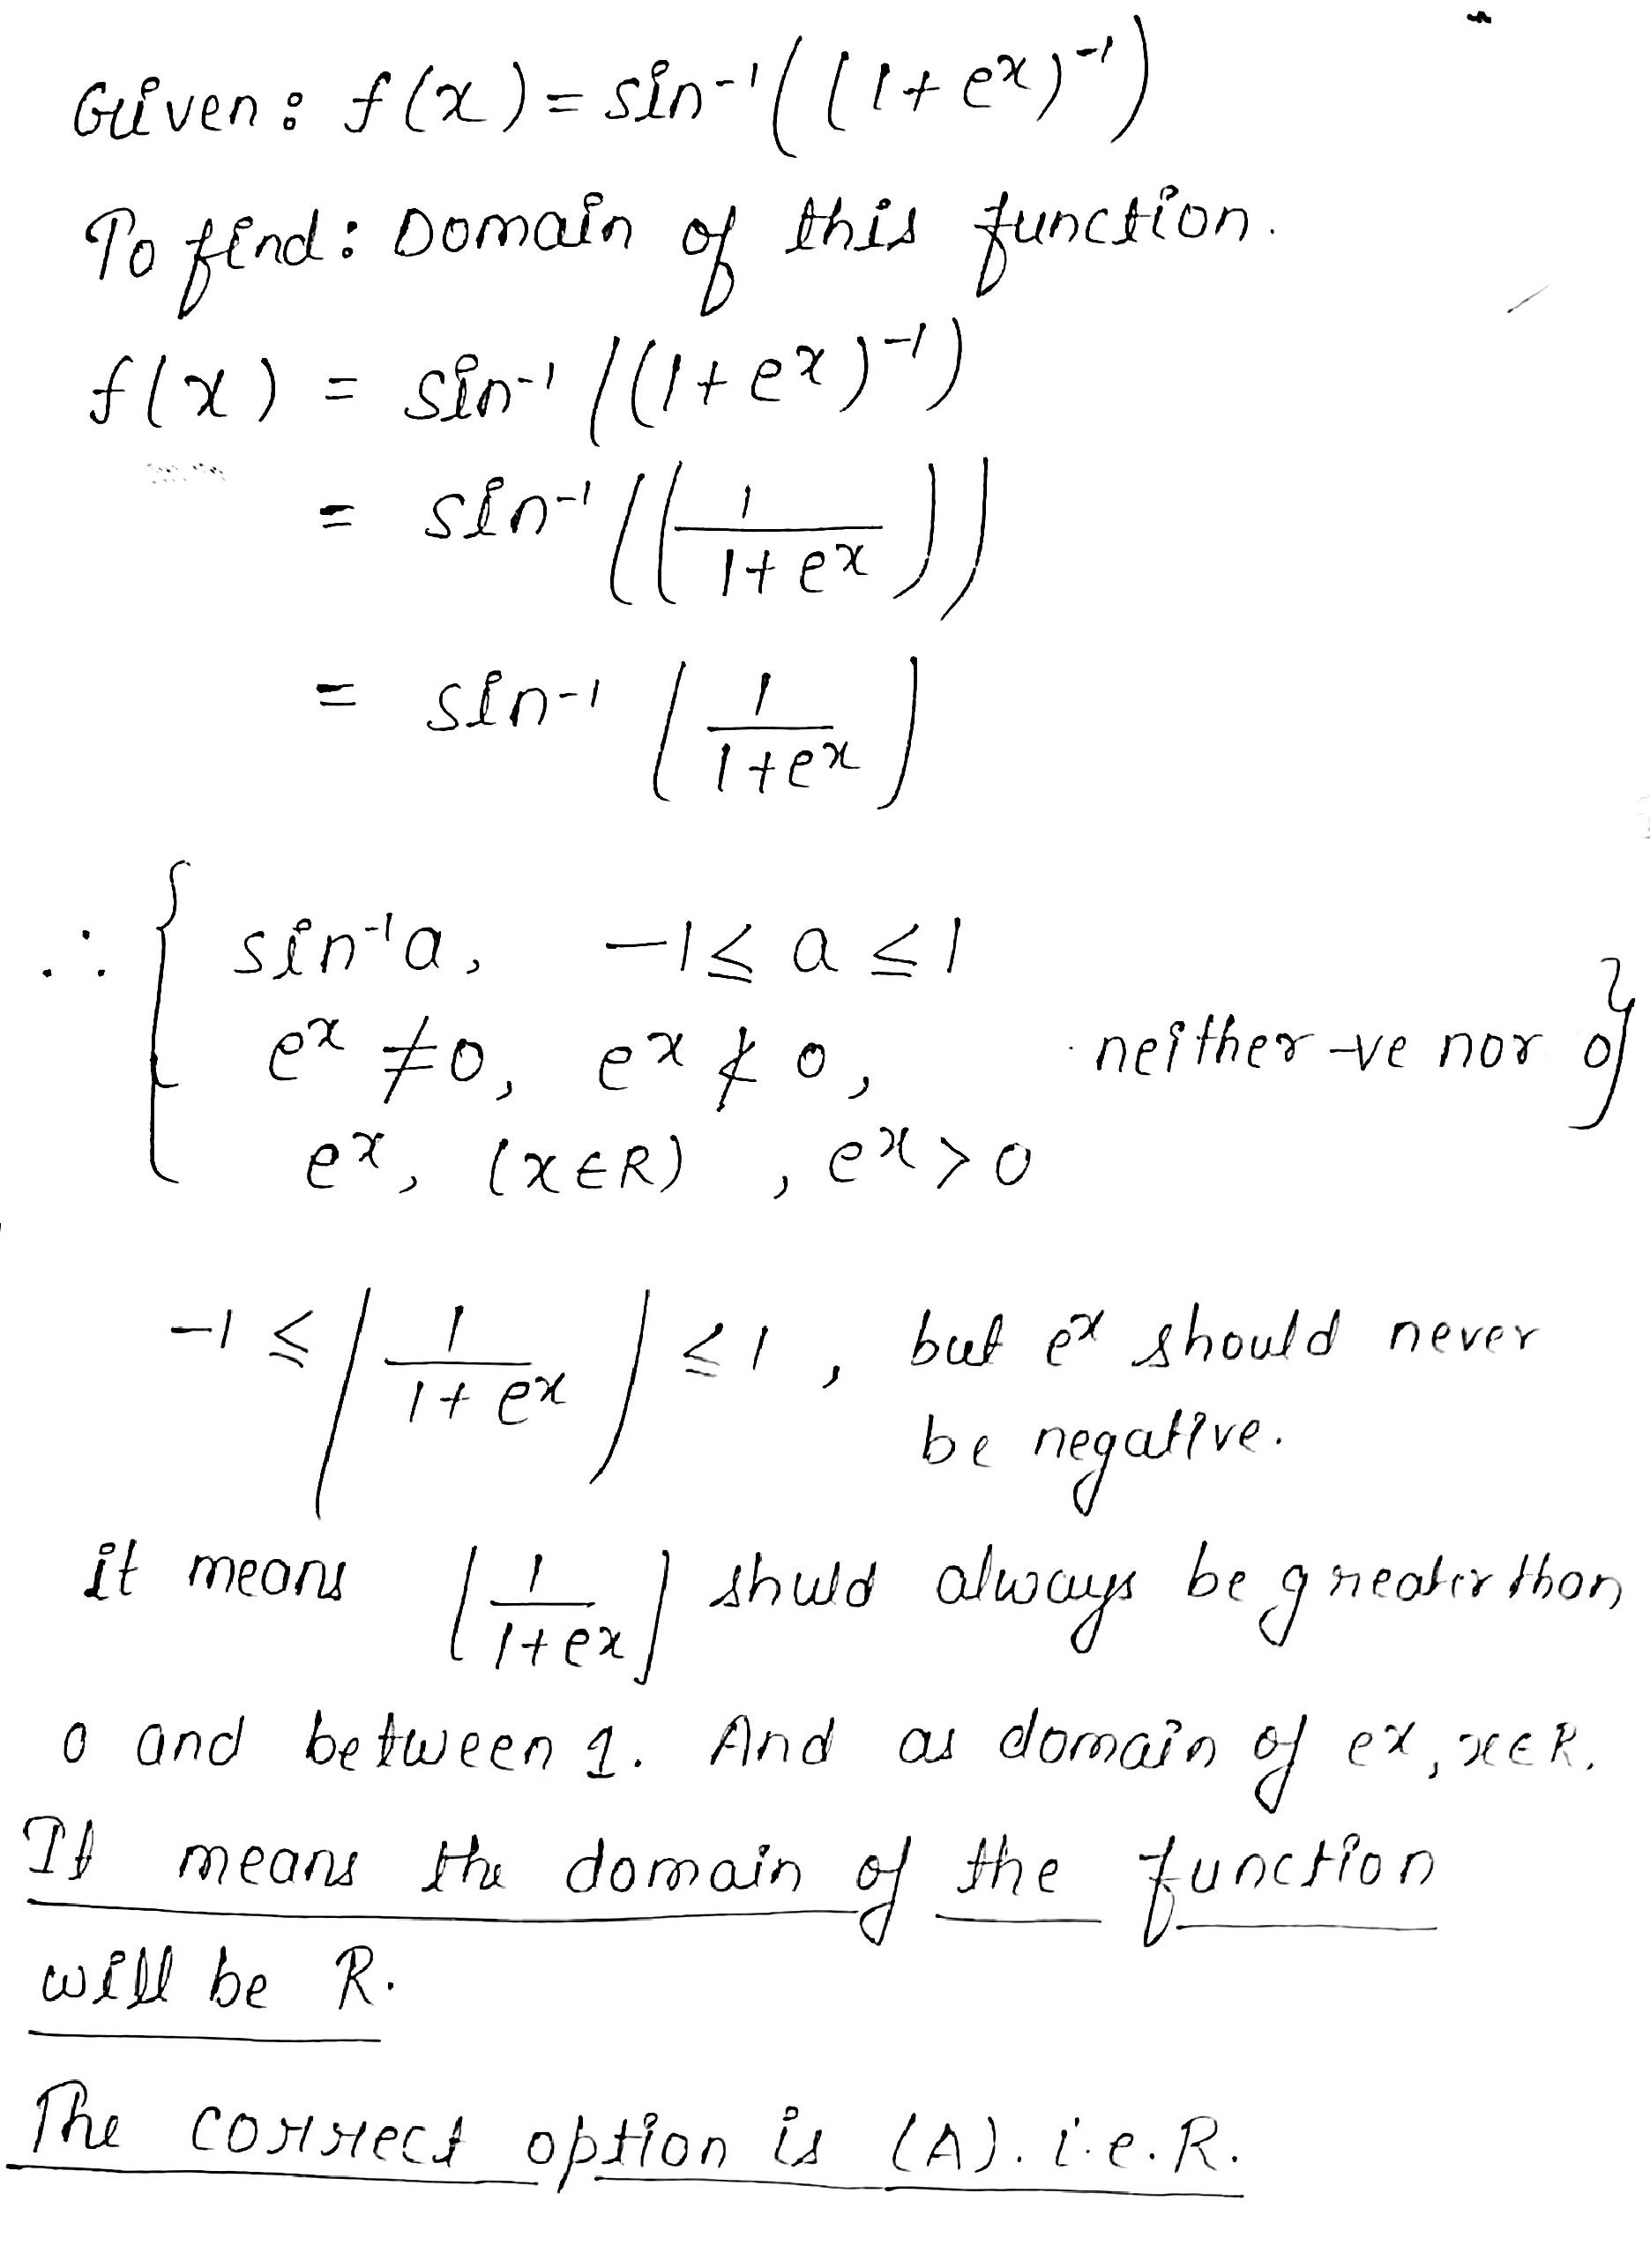 Given: f(x) = sin⁻¹((1+eˣ)⁻¹)
To find: Domain of this function.
f(x) = sin⁻¹((1+eˣ)⁻¹)
= sin⁻¹((1/(1+eˣ)))
= sin⁻¹(1/(1+eˣ))
∴ { sin⁻¹a, -1 ≤ a ≤ 1
eˣ ≠ 0, eˣ ≮ 0, neither -ve nor 0 }
eˣ, (x∈R), eˣ > 0
-1 ≤ (1/(1+eˣ)) ≤ 1, but eˣ should never
be negative.
it means (1/(1+eˣ)) shuld always be greater than
0 and between 1. And as domain of eˣ, x∈R.
It means the domain of the function
will be R.
The correct option is (A). i.e. R.